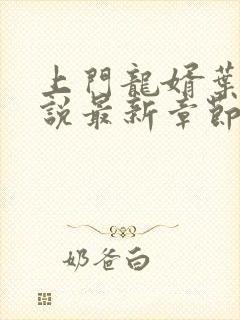 上門龍婿葉
說最新章節
奶爸白